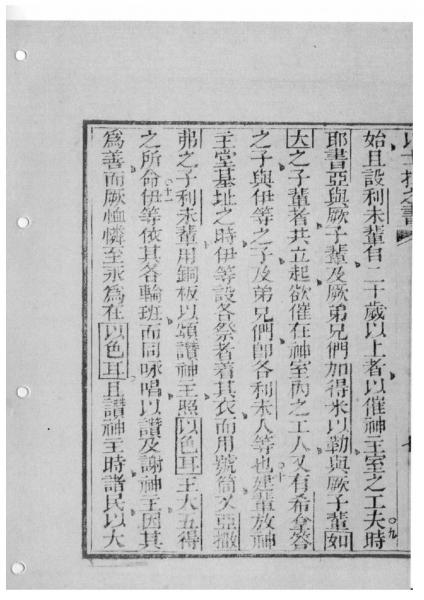 以士拉之書
始且設利未輩自二十歲以上者以催神主室之工夫時
耶書亞與厥子輩及厥弟兄們加得米以勒與厥子輩如
大之子輩者共立起欲催在神室內之工人又有希拿答
之子與伊等之子及弟兄們卽各利未人等也建輩放神
主堂基址之時伊等設各祭者着其衣而用號筒又亞撒
弗之子利未輩用銅板以頌讚神主照以色耳王大五得
之所命伊等依其各輪班而同咏唱以讚及謝神主因其
爲善而厥恤憐至永爲在以色耳且讚神主時諸民以大